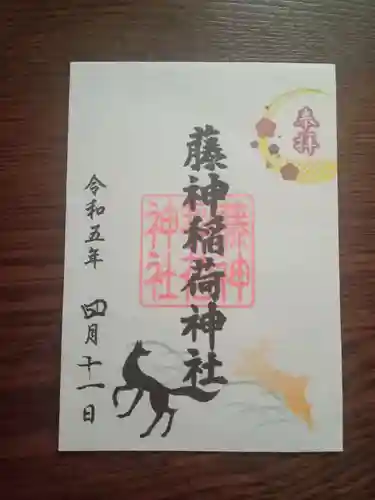 奉拝
藤神稲荷神社
藤神稲荷神社
令和五年 四月十一日